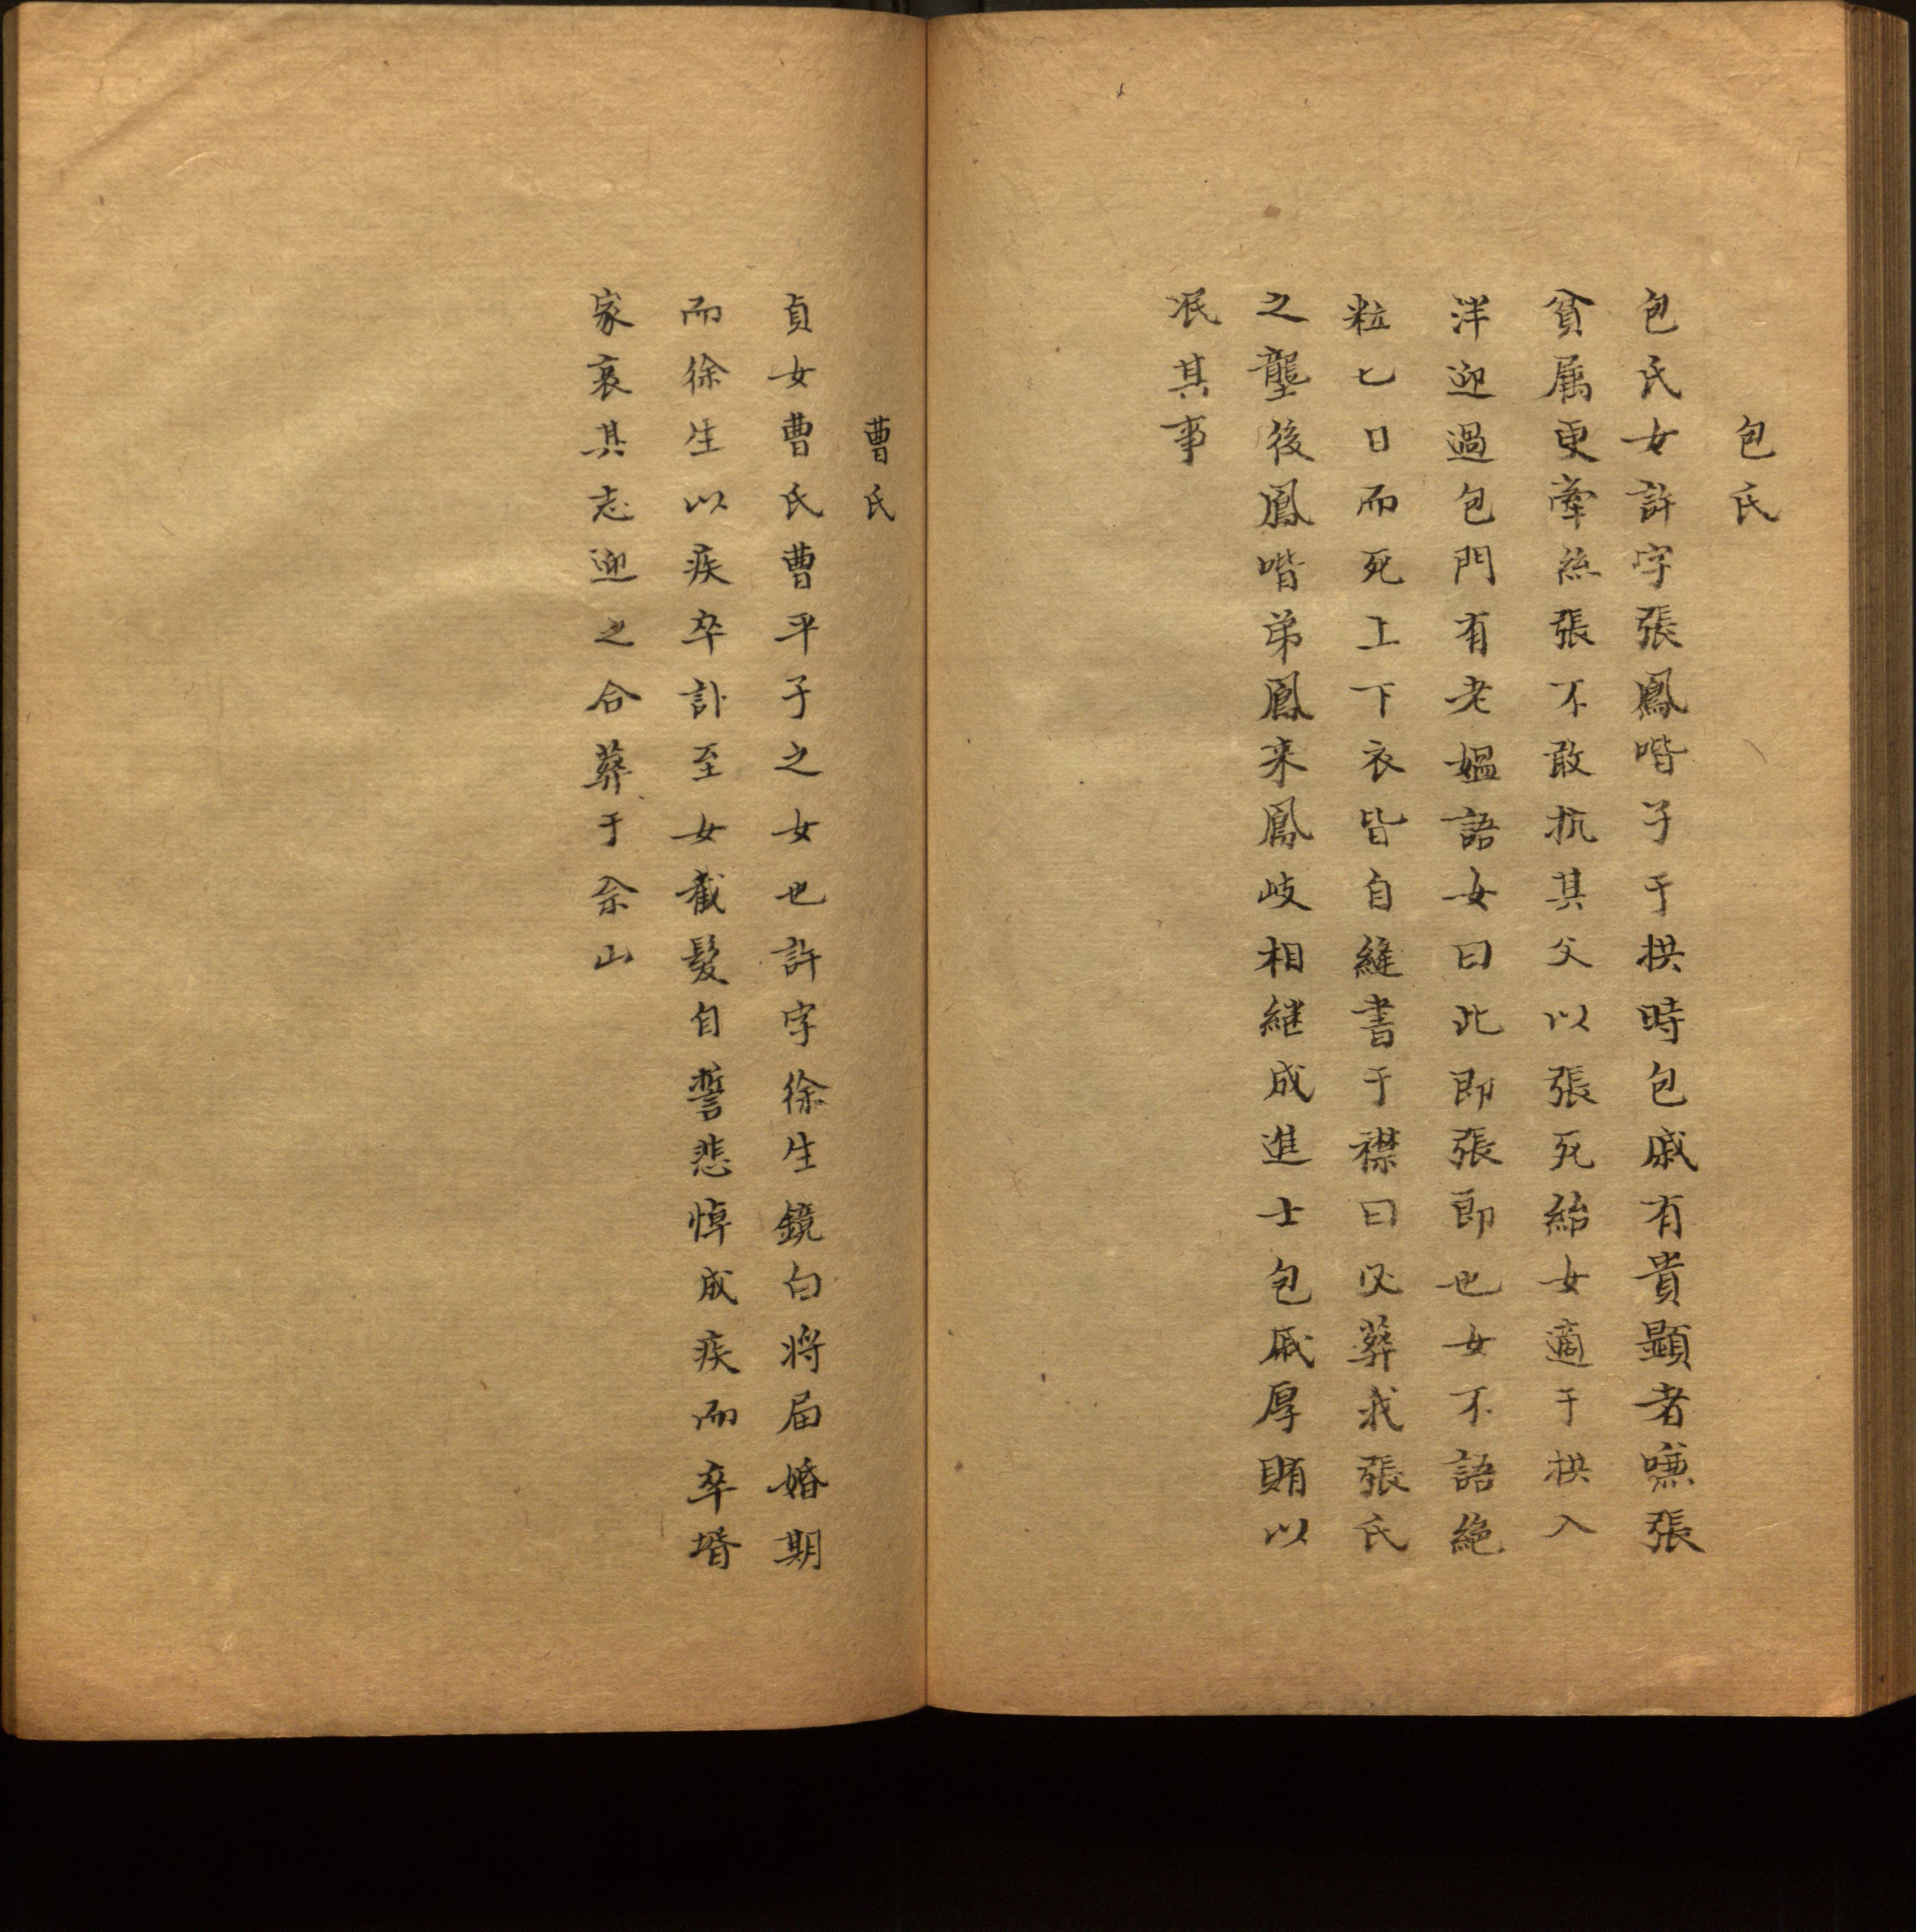 包氏
包氏女許字張鳳喈子于拱時包戚有貴顯者嗛張
貧属更牽絲張不敢抗其父以張死紿女適于拱入
泮迎過包門有老媼語女曰此即張郎也女不語絶
粒七日而死上下衣皆自縫書于襟曰必葬我張氏
之壟後鳳喈弟鳳来鳳岐相継成進士包戚厚賄以
泯其事
曹氏
貞女曹氏曹平子之女也許字徐生鏡白将届婚期
而徐生以疾卒訃至女截髮自誓悲悼成疾而卒壻
家哀其志迎之合葬于佘山